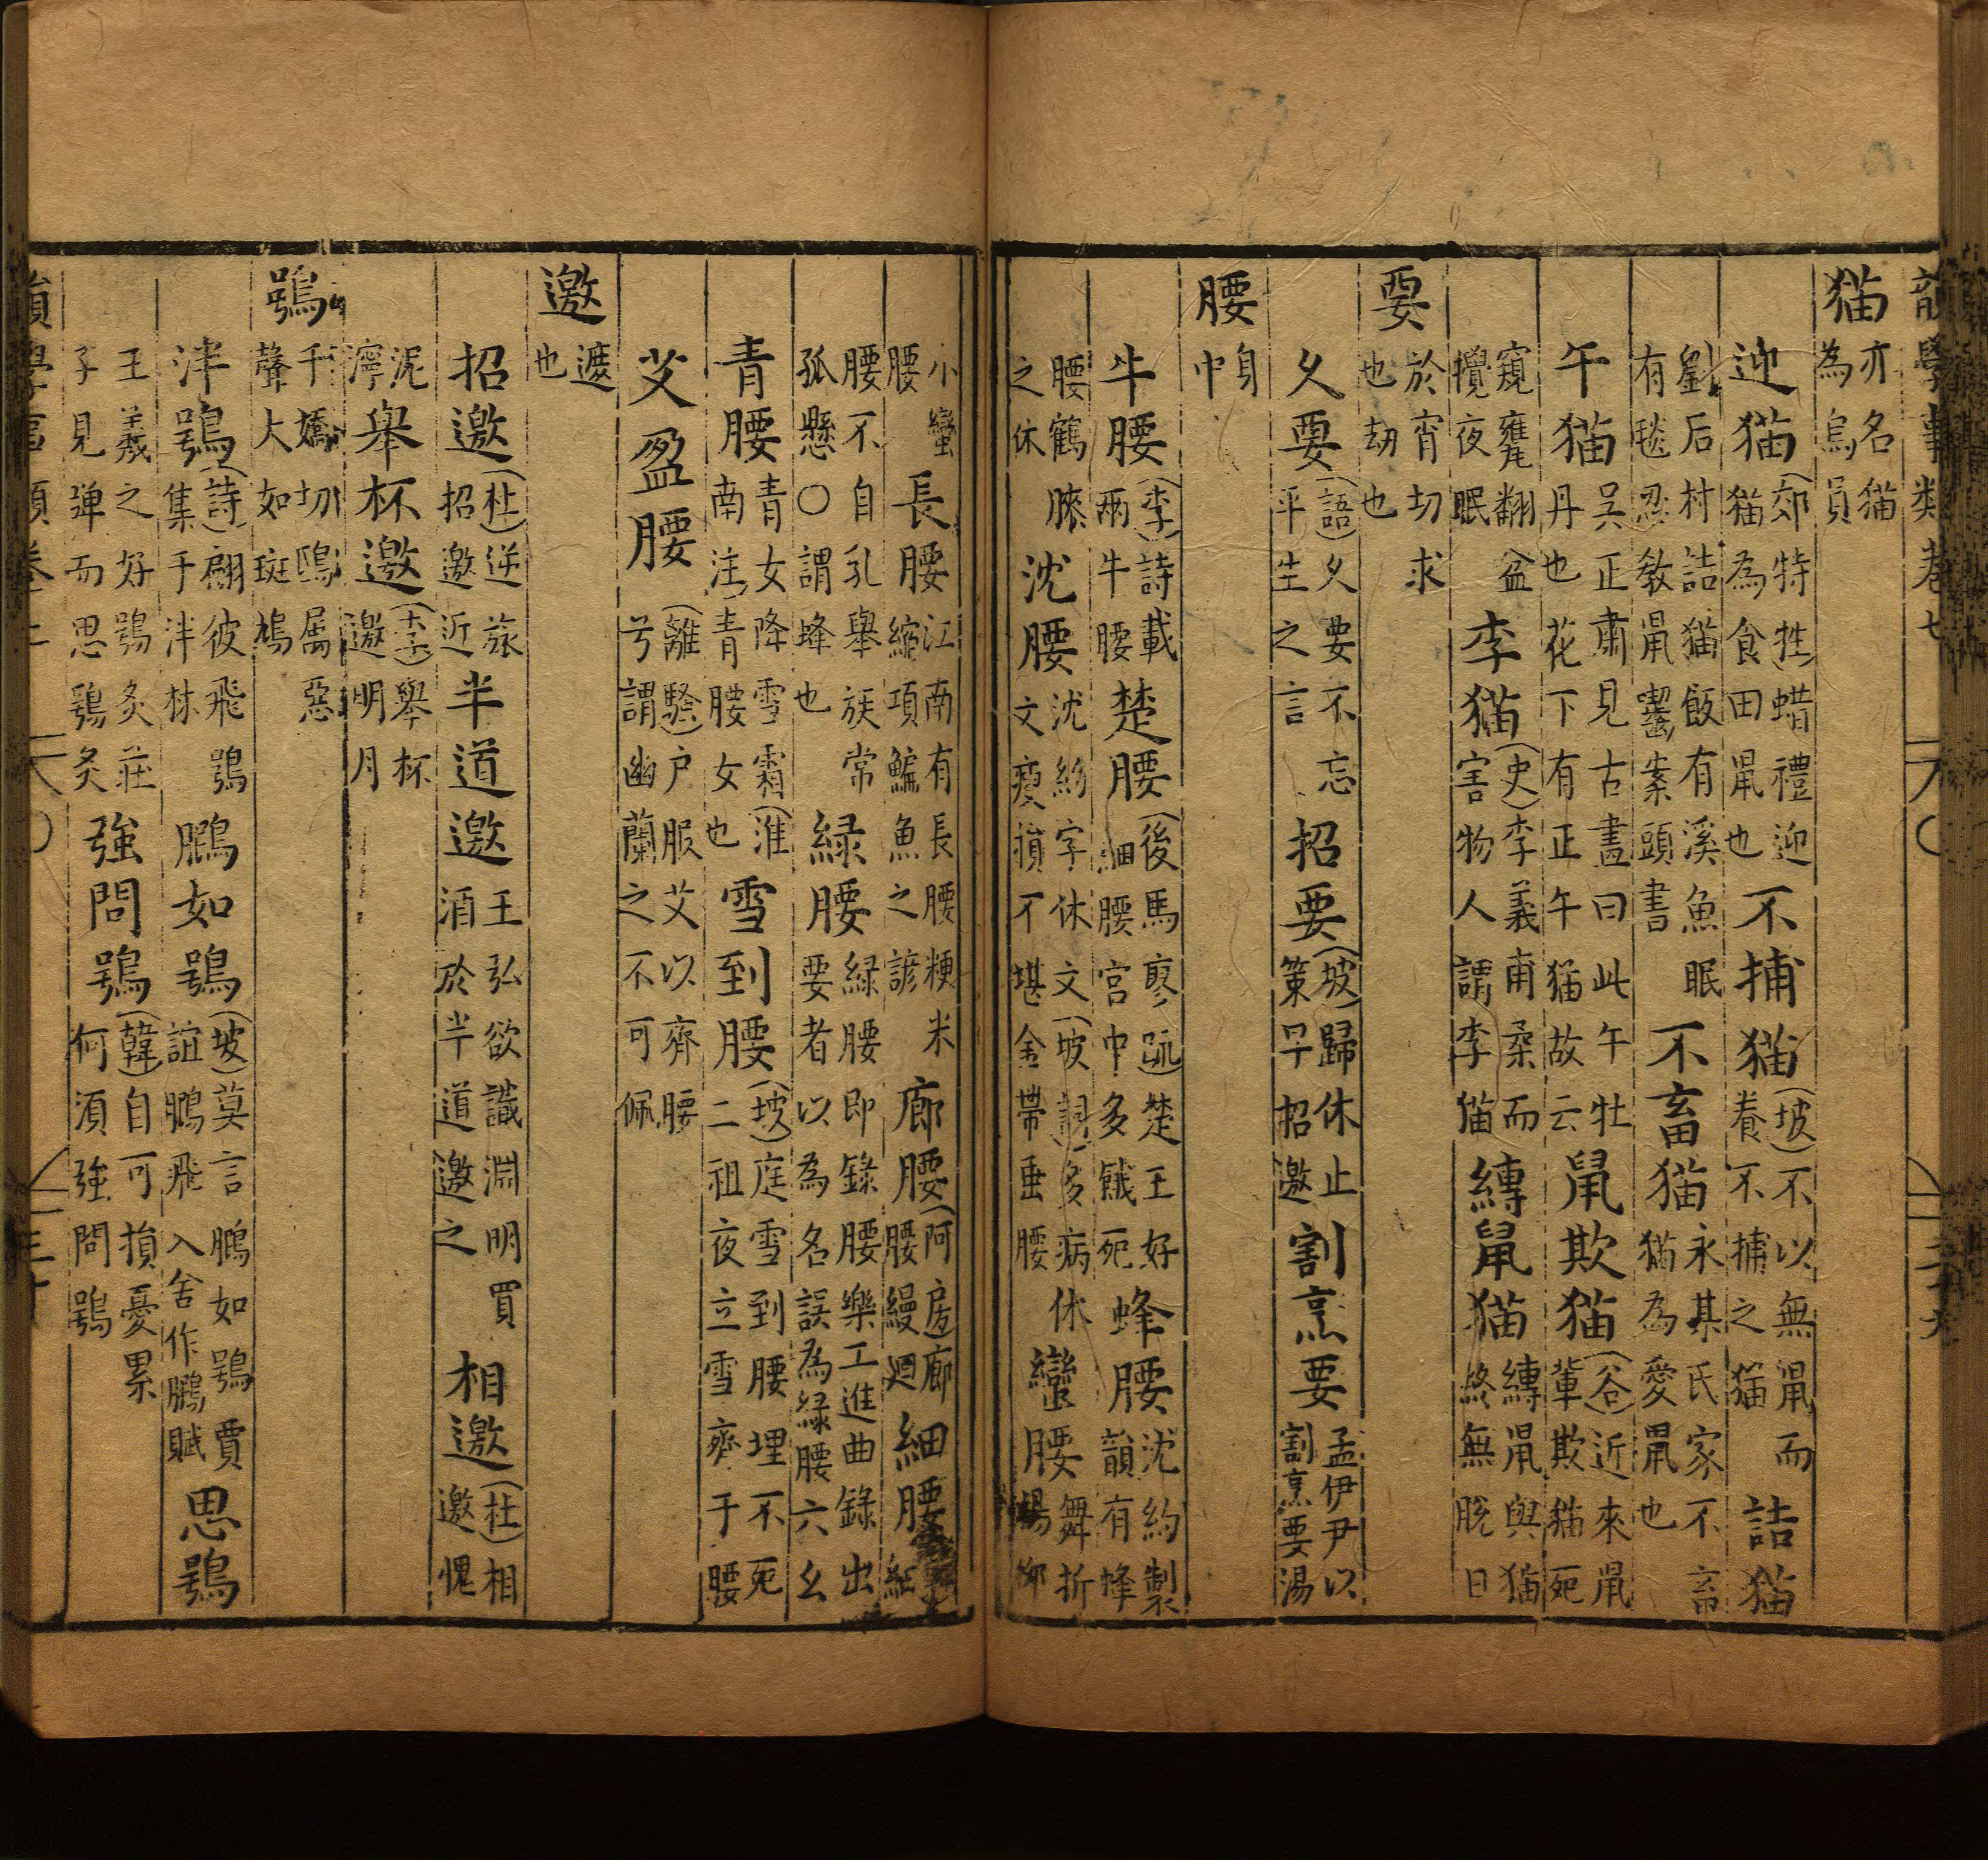 韻學事類卷七
猫 亦名猫為烏員
迎猫(郊)特牲蜡禮迎猫為食田鼠也 不捕猫(坡)不以無鼠而養不捕之猫 詰猫
劉后村詰猫飯有溪魚眠有毯忍教鼠囓案頭書 不畜猫 永某氏家不畜猫為愛鼠也
午猫 吳正肅見古畫曰此午牡丹也花下有正午猫故云 鼠欺猫(谷)近來鼠輩欺猫死
窺甕翻盆攪夜眠 李猫(史)李義甫柔而害物人謂李猫 縛鼠猫 縛鼠與猫終無脫日
要 於宵切求也劫也
久要(語)久要不忘平生之言 招要(坡)歸休止策早招邀 割烹要 孟伊尹以割烹要湯
腰 身中
牛腰(李)詩載兩牛腰 楚腰(後)馬廖疏楚王好細腰宮中多餓死 蜂腰 沈約製韻有蜂
腰鶴膝之休 沈腰 沈約字休文(坡詞)多病休文瘦損不堪金帶垂腰 蠻腰 舞折楊柳
小蠻腰 長腰 江南有長腰粳米縮項鯿魚之諺 廊腰(阿房)廊腰縵廻 細腰
腰不自乳舉族常孤懸〇謂蜂也 緑腰 緑腰即錄腰樂工進曲錄出要者以為名誤為緑腰六幺
青腰 青女降雪霜(淮南)注青腰女也 雪到腰(坡)庭雪到腰埋不死二祖夜立雪齊于腰
艾盈腰(離騷)户服艾以齊腰兮謂幽蘭之不可佩
邀 遮也
招邀(杜)逆旅招邀近 半道邀 王弘欲識淵明買酒於半道邀之 相邀(杜)相邀愧
泥濘 舉杯邀(李)舉杯邀明月
鴞 于嬌切鴟属惡聲大如斑鳩
泮鴞(詩)翩彼飛鴞集于泮林 鵩如鴞(坡)莫言鵩如鴞賈誼鵩飛入舍作鵩賦 思鴞
王羲之好鴞炙莊子見彈而思鴞炙 強問鴞(韓)自可損憂累何須強問鴞